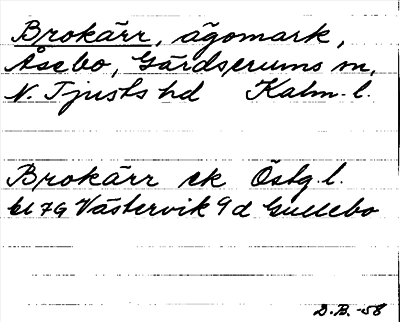 Brokärr, ägomark,
Åsebo, Gärdserums sn,
N. Tjusts hd Kalm. l.
Brokärr ek Östg. l.
bl 7G Västervik 9 d Gullebo
D.B. -58